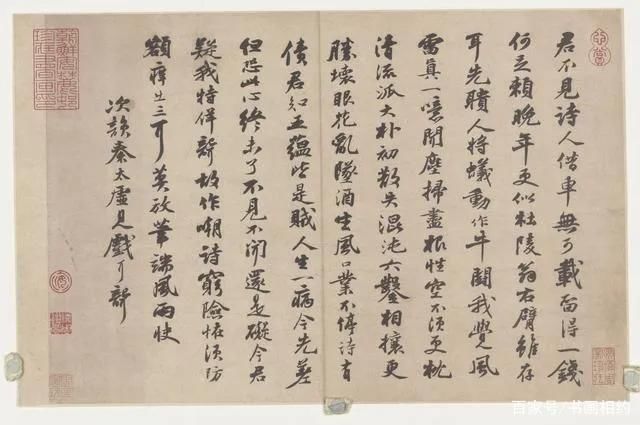 君不見詩人借車無可載留得一錢
何足賴晚年更似杜陵翁右臂雖存
耳先聵人將蟻動作牛鬪我覺風
雷真一噫聞塵掃盡根性空不須更枕
清流派大朴初散失混沌六鑿相攘更
勝壞眼花亂墜酒生風口業不停詩有
債君知五蘊皆是賊人生一病今先差
但恐此心終未了不見不聞還是礙今君
疑我特佯聾故作嘲詩窮險怪須防
額痒出三耳莫放筆端風雨快
次韻秦太虛見戲耳聾
百家号/书画相约